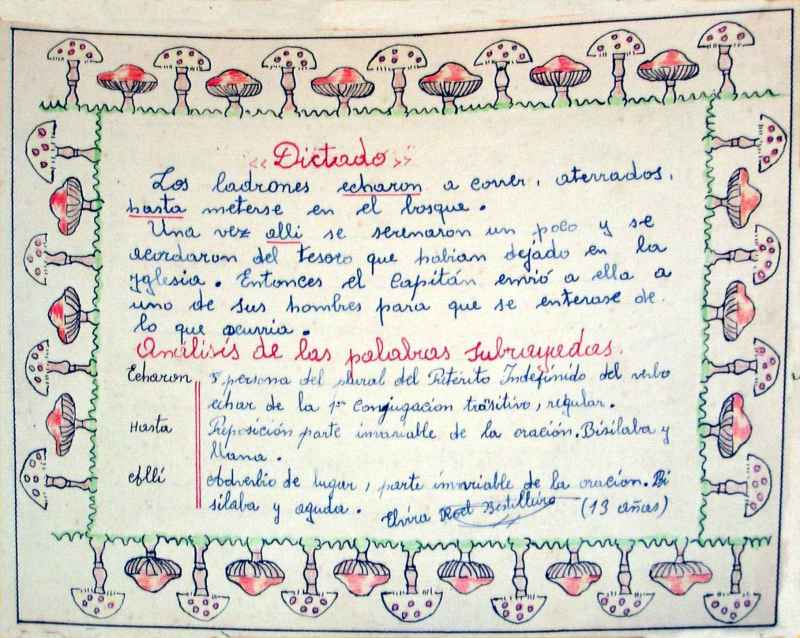 « Dictado »
Los ladrones echaron a correr, aterrados,
hasta meterse en el bosque.
Una vez alli se serenaron un poco y se
acordaron del tesoro que habian dejado en la
Yglesia. Entonces el Capitán envió a ella a
uno de sus hombres para que se enterase de
lo que ocurria.
Análisis de las palabras subrayadas.
Echaron persona del plural del Pretérito Indefinido del verbo
echar de la 1ª conjugacion transitivo, regular.
Hasta Preposición parte invariable de la oración. Bisilaba y
llana.
Allí Adverbio de lugar, parte invariable de la oración. Bi
silaba y aguda. Elvira (13 años)